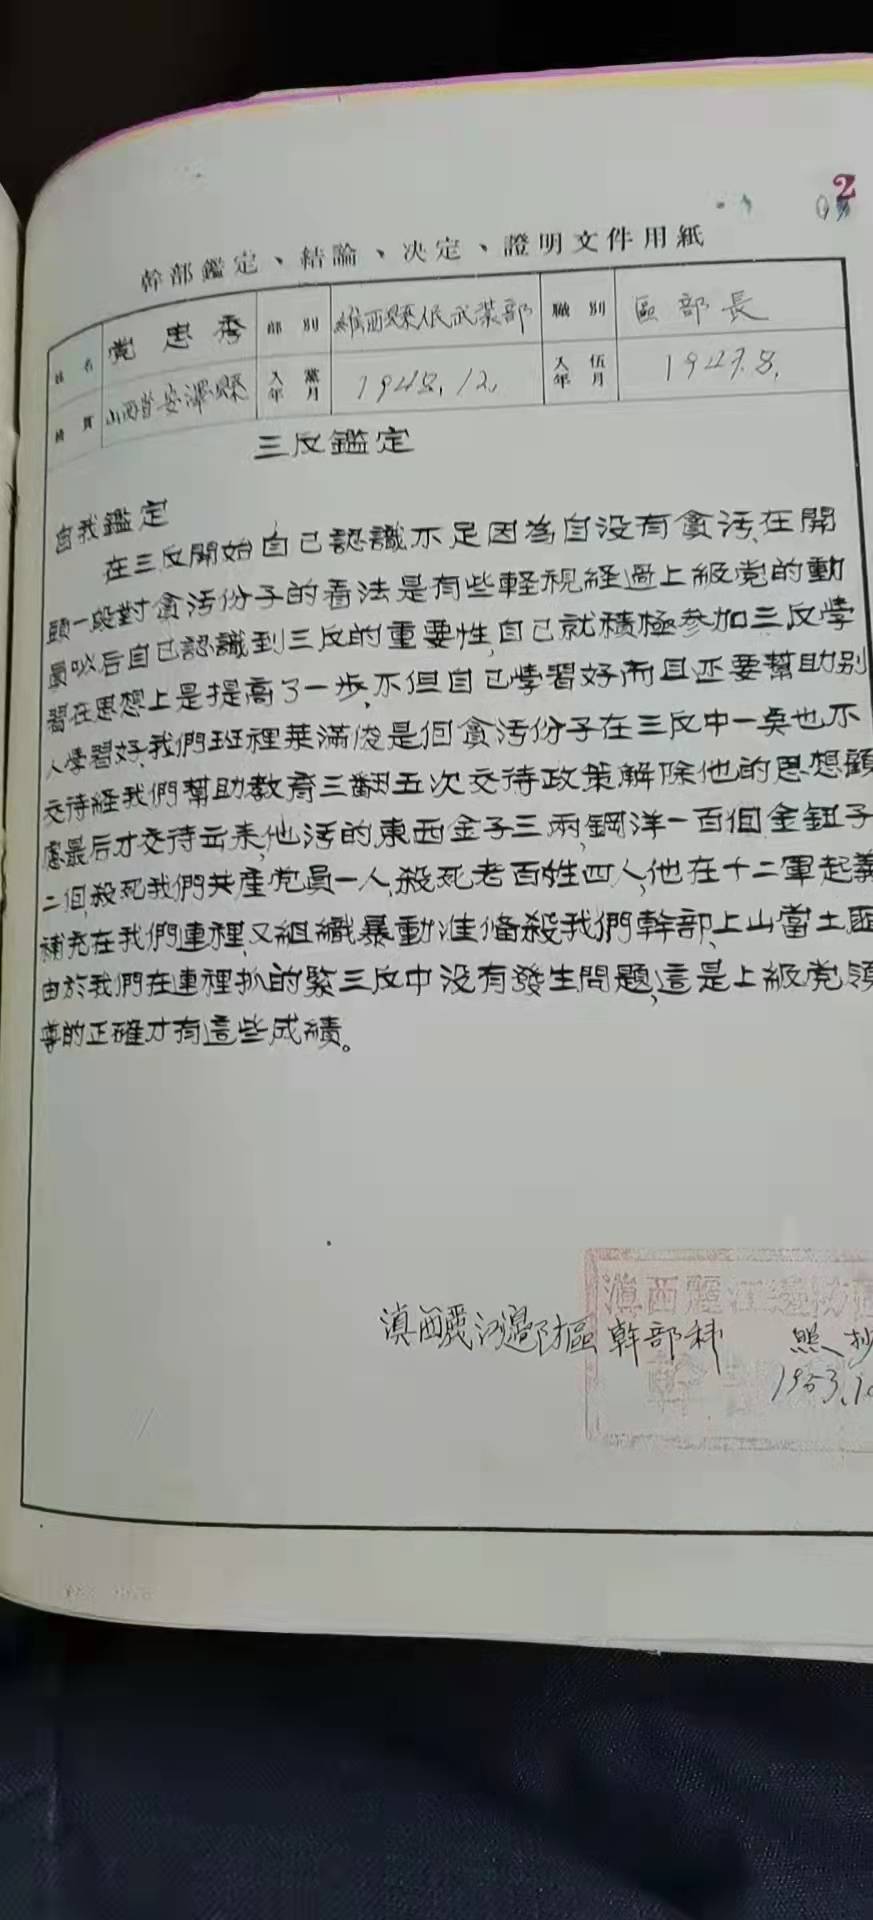 2
幹部鑑定、結論、决定、證明文件用紙
姓名 党忠秀 部別 維西縣人民武裝部 職別 區部長
籍貫 山西省安澤縣 入黨年月 1948.12. 入伍年月 1947.8.
三反鑑定
自我鑑定
在三反開始自己認識不足因為自没有貪污,在開
頭一段對貪污份子的看法是有些軽視経過上級党的動
員以后自己認識到三反的重要性,自己就積極參加三反學
習在思想上是提高了一步,不但自己學習好而且还要幫助别
人學習好,我們班裡葉滿俊是個貪污份子在三反中一奌也不
交待経我們幫助教育三翻五次交待政策解除他的思想顧
慮最后才交待云来,他污的東西金子三兩,鋼洋一百個金鈕子
二個,殺死我們共產党員一人,殺死老百姓四人,他在十二軍起義
補充在我們連裡,又組織暴動准俻殺我們幹部、上山當土匪
由於我們在連裡抓的緊三反中没有發生問題,這是上級党領
導的正確才有這些成績。
滇西麗江邊防區幹部科 照抄
滇西麗江邊防
1953.1